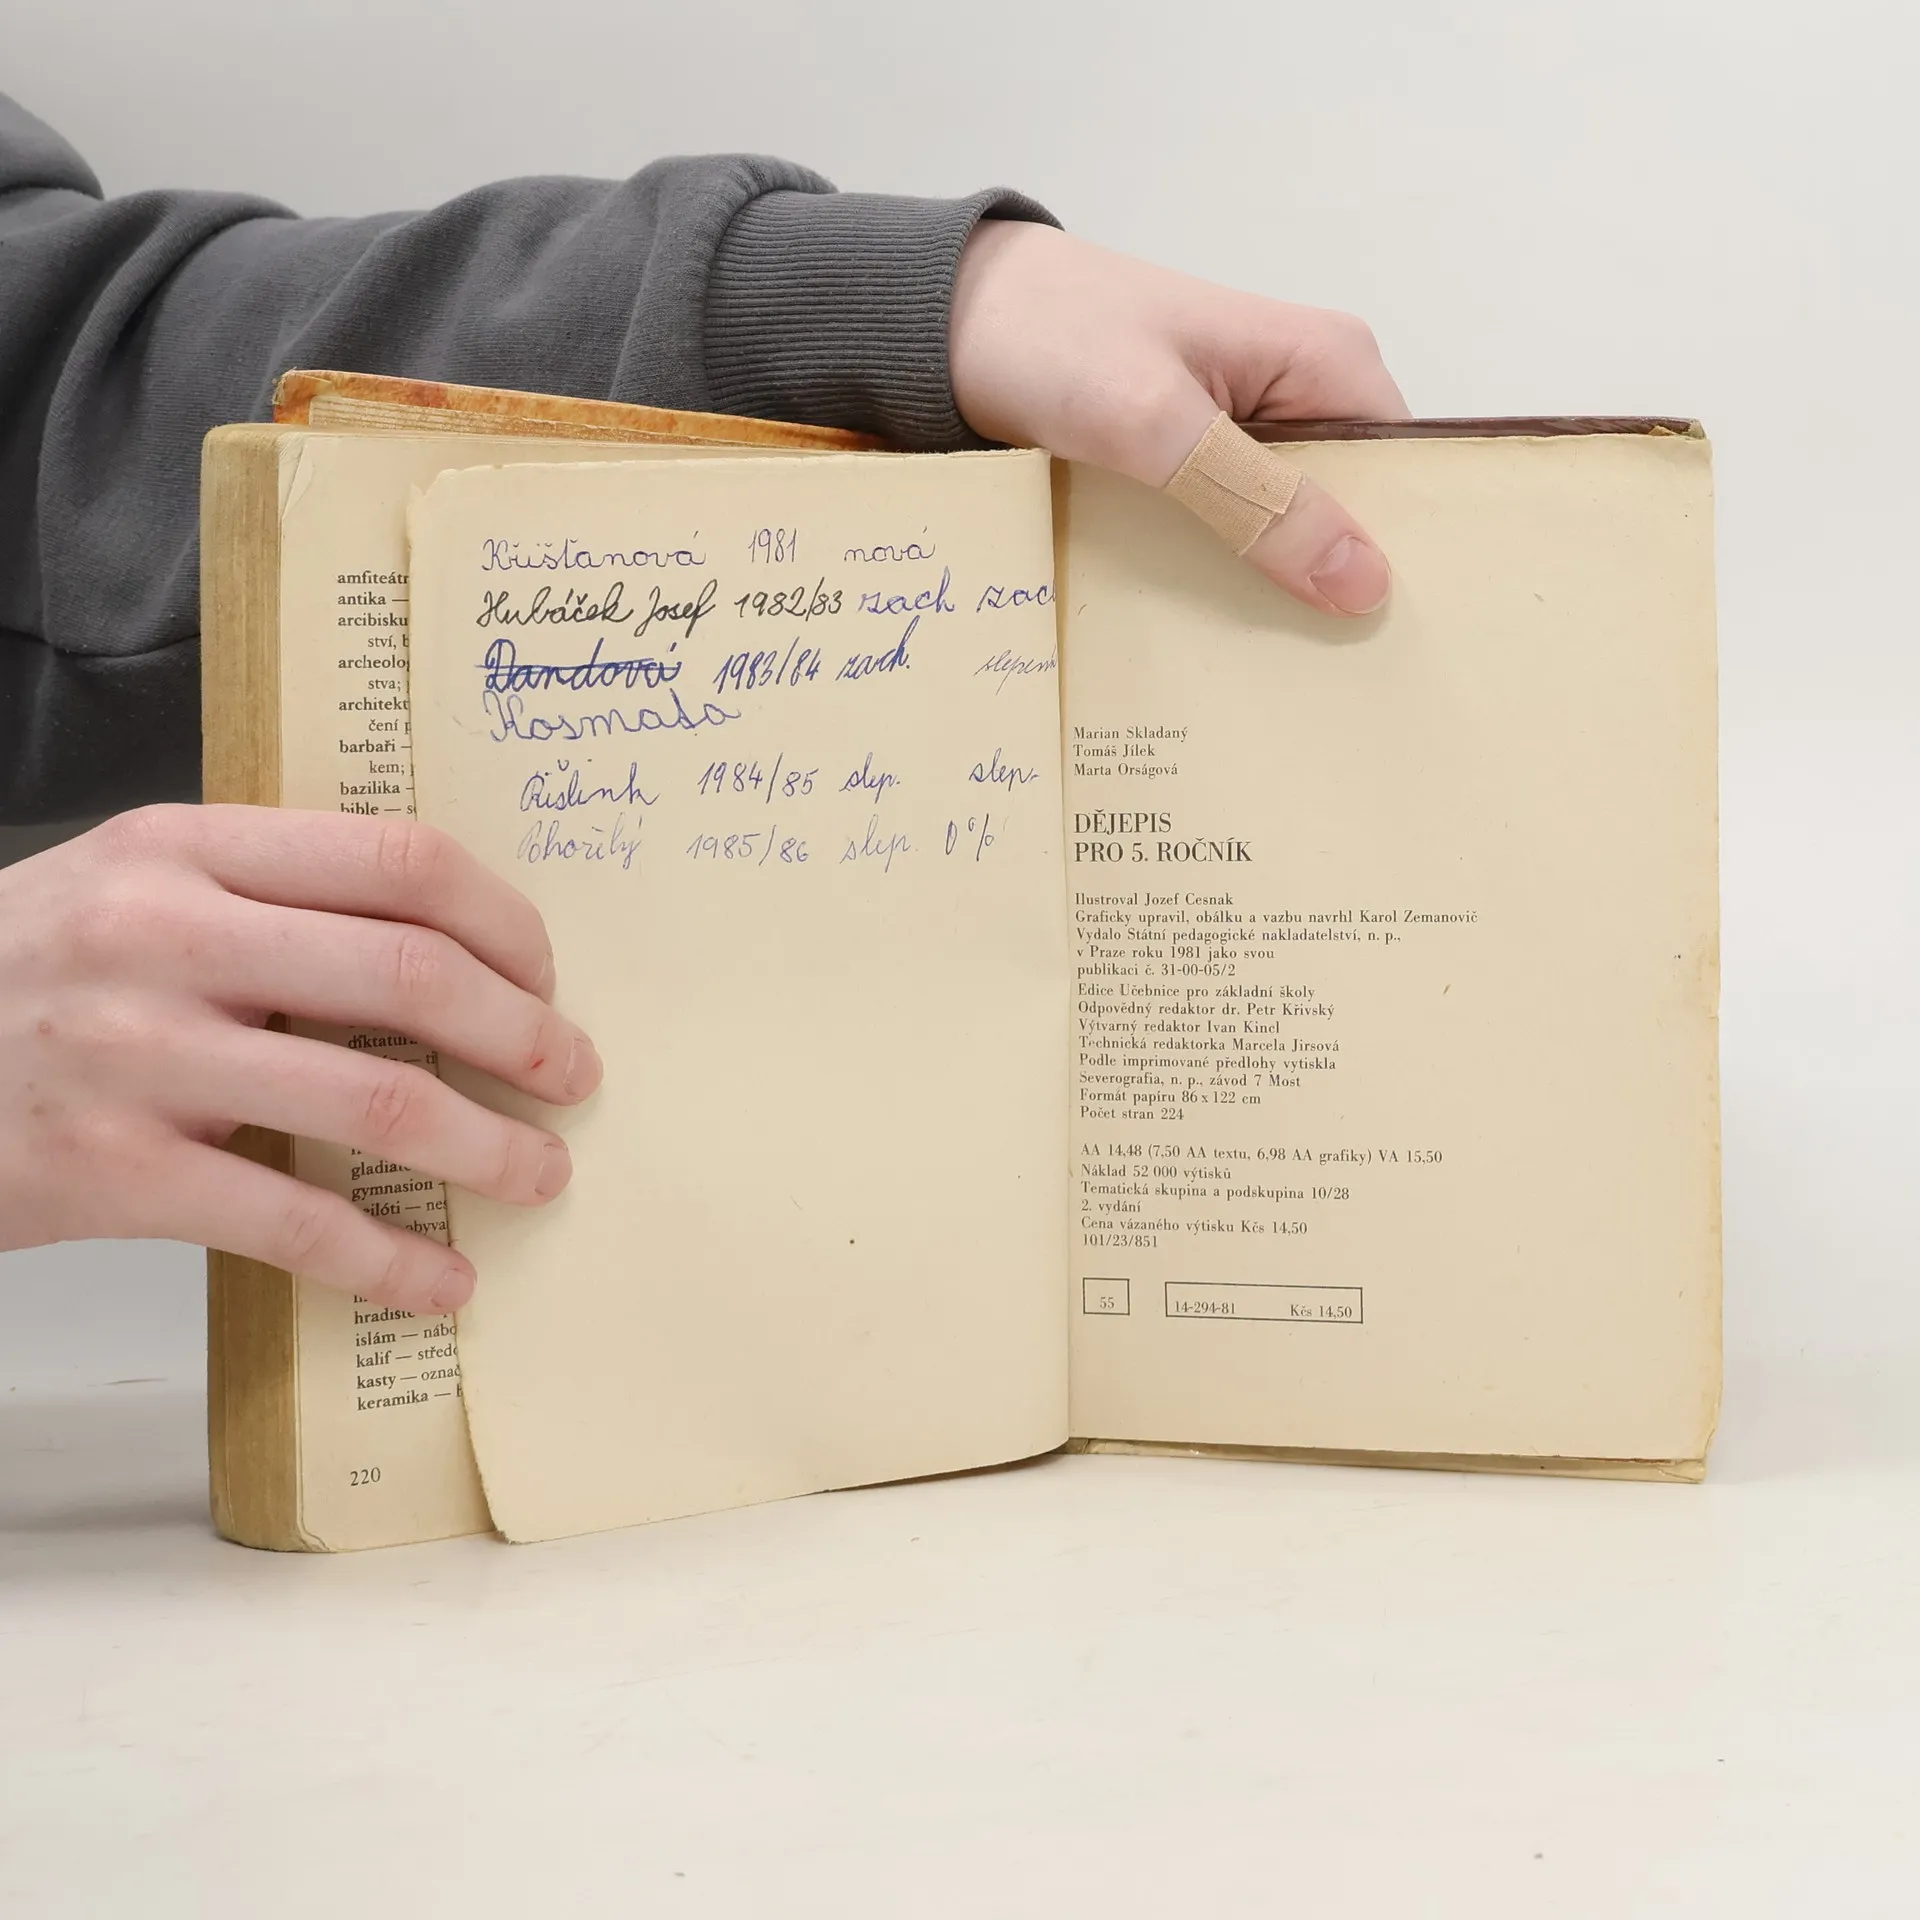 amfiteátr
antika —
arcibisku
ství, b
archeolo
stva;
architekt
čení p
barbaři —
kem;
bazilika —
bible — s
diktatur
gladiát
gymnasion
obyva
hradiště
islám — nábo
kalif — střed
kasty — označ
keramika —
220
Křišťanová 1981 nová
Hubáček Josef 1982/83 zach zach
Dandová 1983/84 zach. slepen
Kosmata
1984/85 slep. slep.
Phořilý 1985/86 slep. 0%
Marian Skladaný
Tomáš Jílek
Marta Orságová
DĚJEPIS
PRO 5. ROČNÍK
Ilustroval Jozef Cesnak
Graficky upravil, obálku a vazbu navrhl Karol Zemanovič
Vydalo Státní pedagogické nakladatelství, n. p.,
v Praze roku 1981 jako svou
publikaci č. 31-00-05/2
Edice Učebnice pro základní školy
Odpovědný redaktor dr. Petr Křivský
Výtvarný redaktor Ivan Kincl
Technická redaktorka Marcela Jirsová
Podle imprimované předlohy vytiskla
Severografia, n. p., závod 7 Most
Formát papíru 86 x 122 cm
Počet stran 224
AA 14,48 (7,50 AA textu, 6,98 AA grafiky) VA 15,50
Náklad 52 000 výtisků
Tematická skupina a podskupina 10/28
2. vydání
Cena vázaného výtisku Kčs 14,50
101/23/851
55
14-294-81 Kčs 14,50